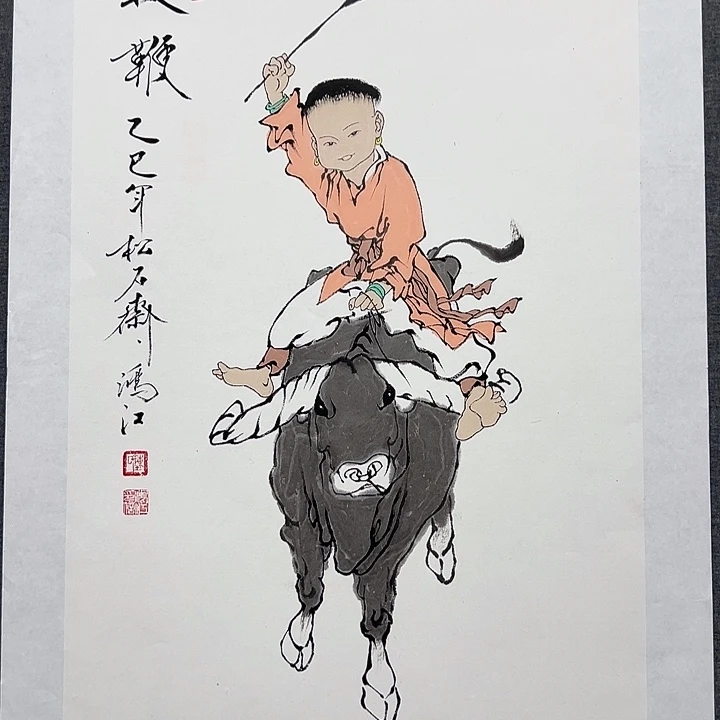 鞭 乙巳年松石齋、鴻江